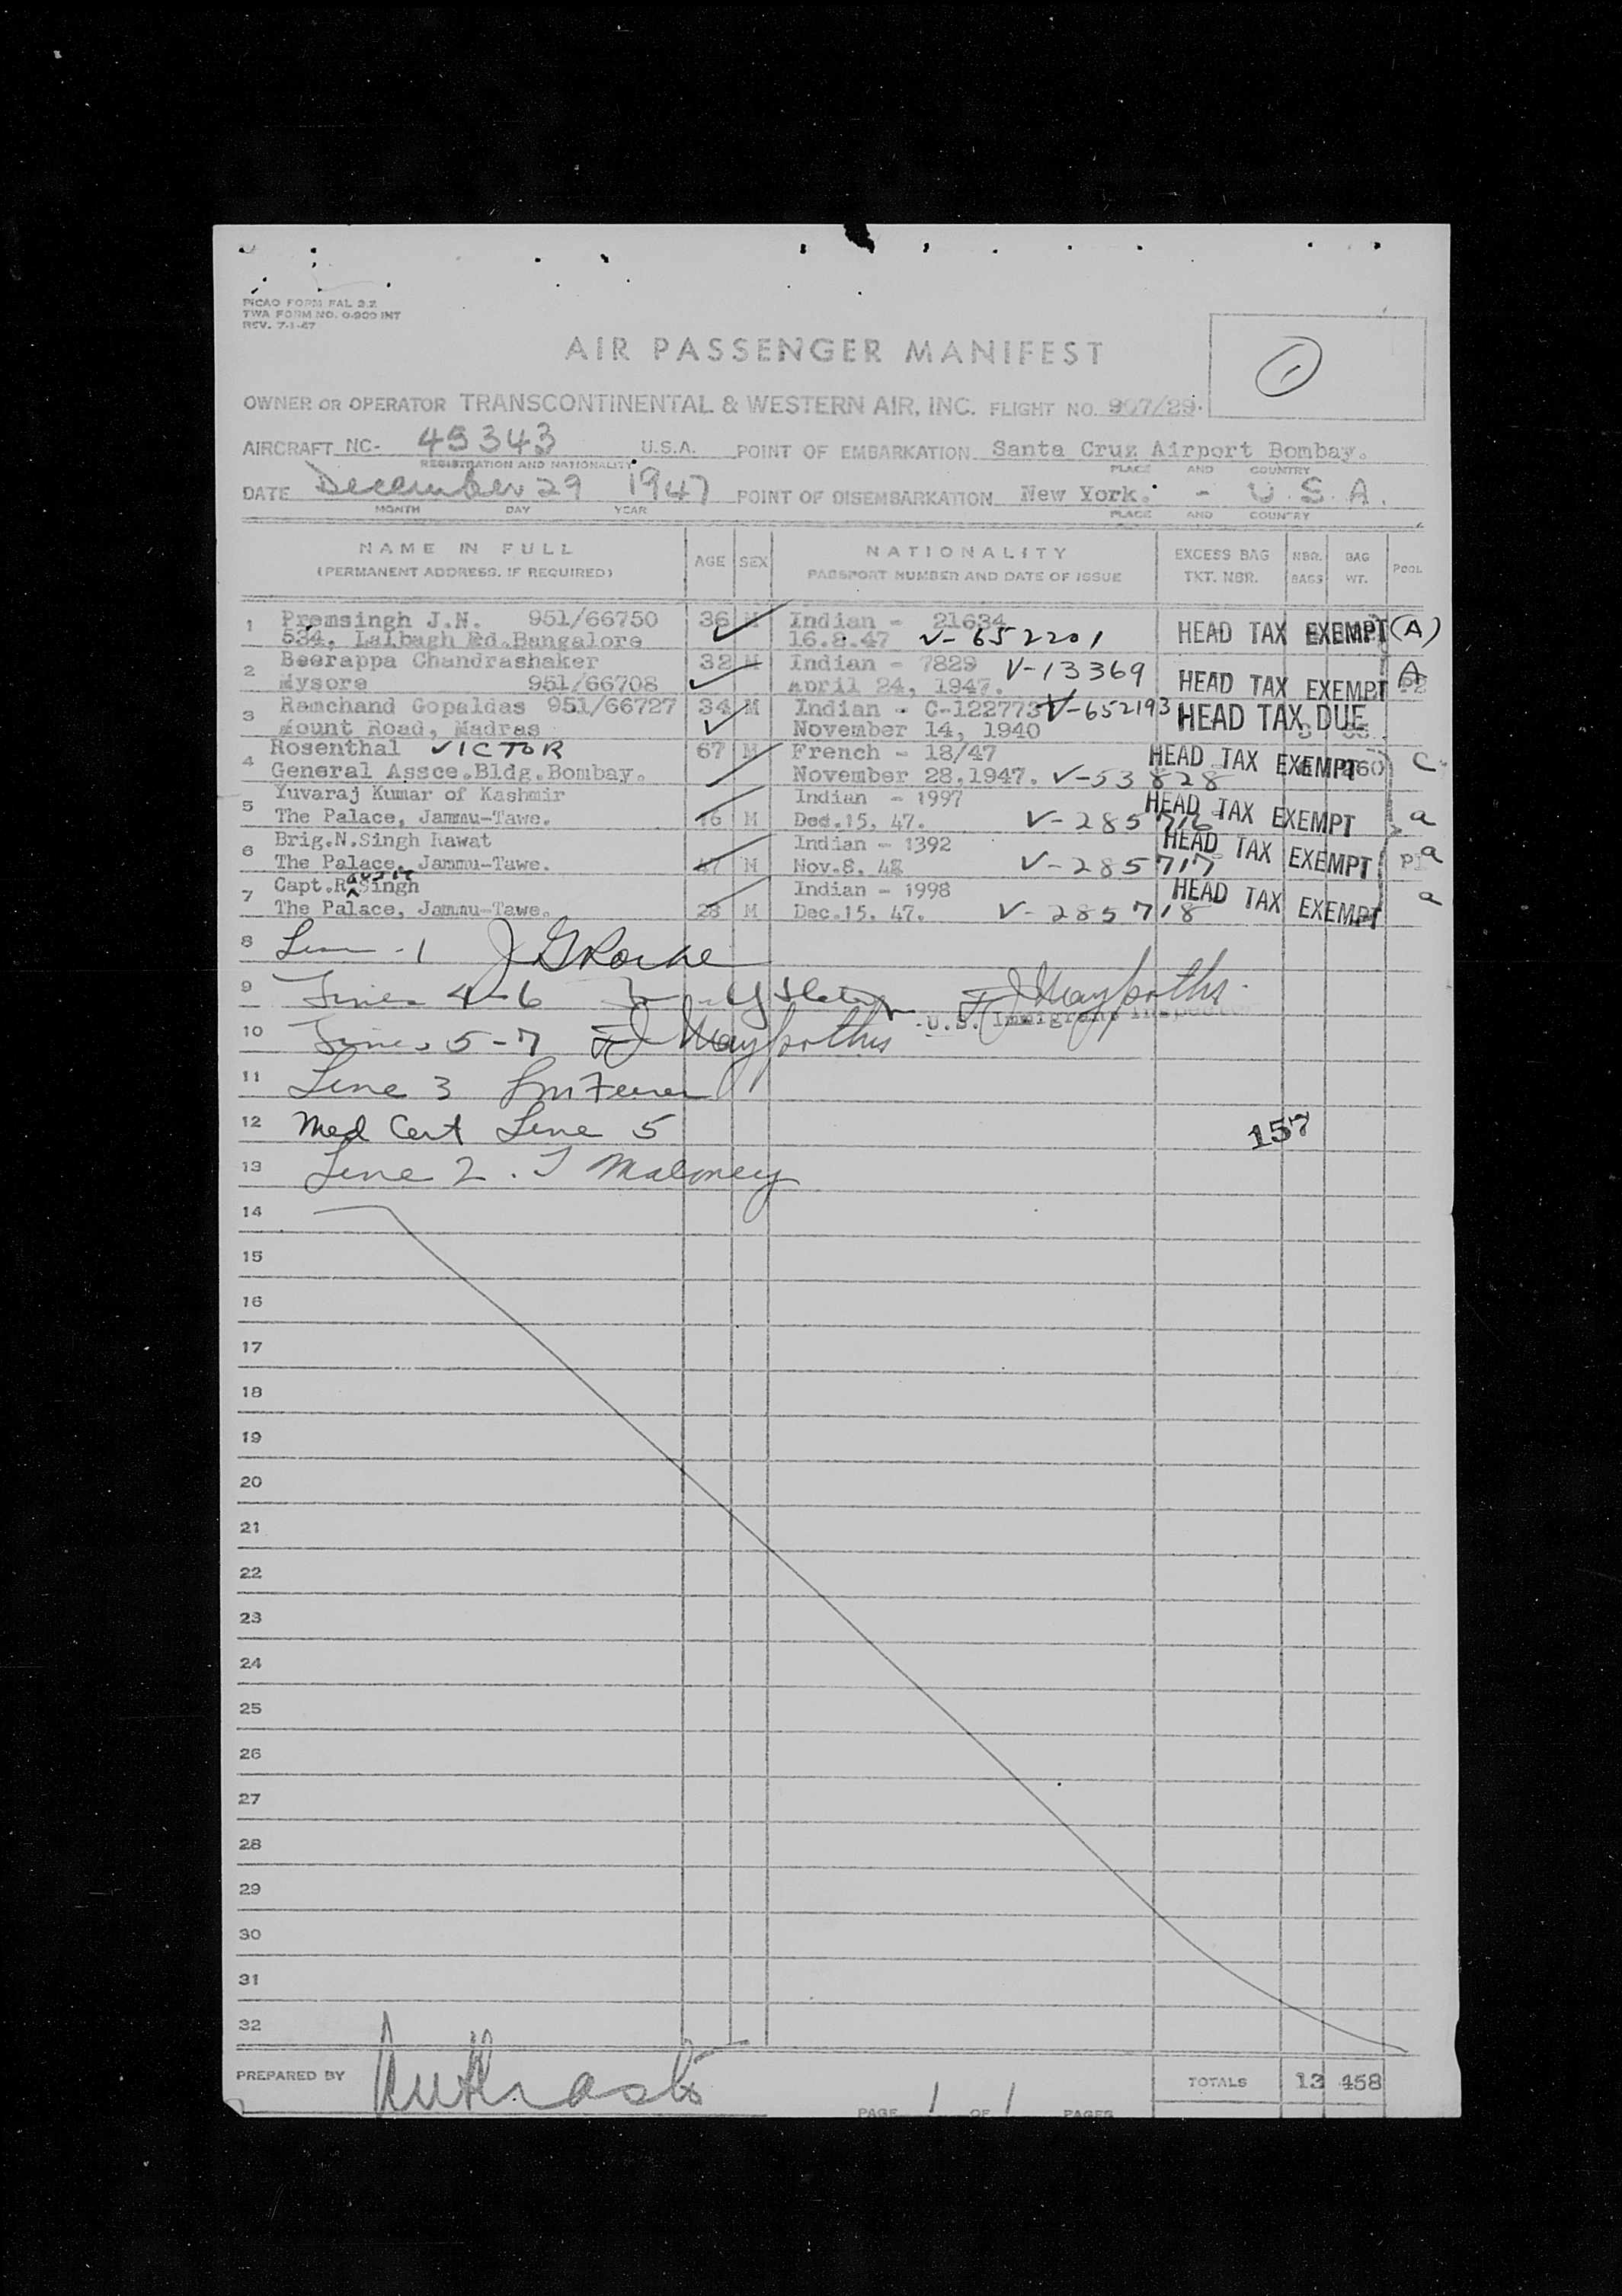 PICAO FORM FAL 2.2
TWA FORM NO. O-900 INT
REV. 7-1-47
1
AIR PASSENGER MANIFEST
OWNER OR OPERATOR TRANSCONTINENTAL & WESTERN AIR, INC. FLIGHT NO. 907/29.
AIRCRAFT NC- 45343 U.S.A. POINT OF EMBARKATION Santa Cruz Airport Bombay.
REGISTRATION AND NATIONALITY PLACE AND COUNTRY
DATE December 29 1947 POINT OF DISEMBARKATION New York. - U.S.A.
MONTH DAY YEAR PLACE AND COUNTRY
NAME IN FULL AGE SEX NATIONALITY EXCESS BAG NBR. BAG POOL
(PERMANENT ADDRESS, IF REQUIRED) PASSPORT NUMBER AND DATE OF ISSUE TKT. NBR. BAGS WT.
1 Premsingh J.N. 951/66750 36 M Indian - 21634
534, Lalbagh Rd.Bangalore 16.8.47 V-652201 HEAD TAX EXEMPT (A)
2 Beerappa Chandrashaker 32 M Indian - 7829 V-13369
Mysore 951/66708 April 24, 1947. HEAD TAX EXEMPT A
3 Ramchand Gopaldas 951/66727 34 M Indian - C-122773 V-652193 HEAD TAX DUE
Mount Road, Madras November 14, 1940
4 Rosenthal VICTOR 67 M French - 18/47 HEAD TAX EXEMPT C
General Assce.Bldg.Bombay. November 28,1947. V-53828
5 Yuvaraj Kumar of Kashmir Indian - 1997
The Palace, Jammu-Tawe. 16 M Dec.15. 47. V-285716 HEAD TAX EXEMPT a
6 Brig.N.Singh Rawat Indian - 1392
The Palace, Jammu-Tawe. 47 M Nov.8. 48 V-285717 HEAD TAX EXEMPT a
7 Capt.R Singh Indian - 1998
The Palace, Jammu-Tawe. 28 M Dec.15. 47. V-285718 HEAD TAX EXEMPT a
8 Line -1 J G Roche
9 Lines 4-6
U.S. Immigrant Inspector
10 Lines 5-7
11 Line 3
12 Med Cert Line 5 157
13 Line 2. J Maloney
14
15
16
17
18
19
20
21
22
23
24
25
26
27
28
29
30
31
32
PREPARED BY TOTALS 13 458
PAGE 1 OF 1 PAGES